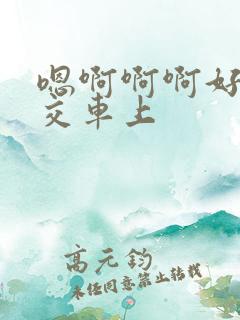 嗯啊啊啊好
交车上
高元钧
未经同意禁止转载